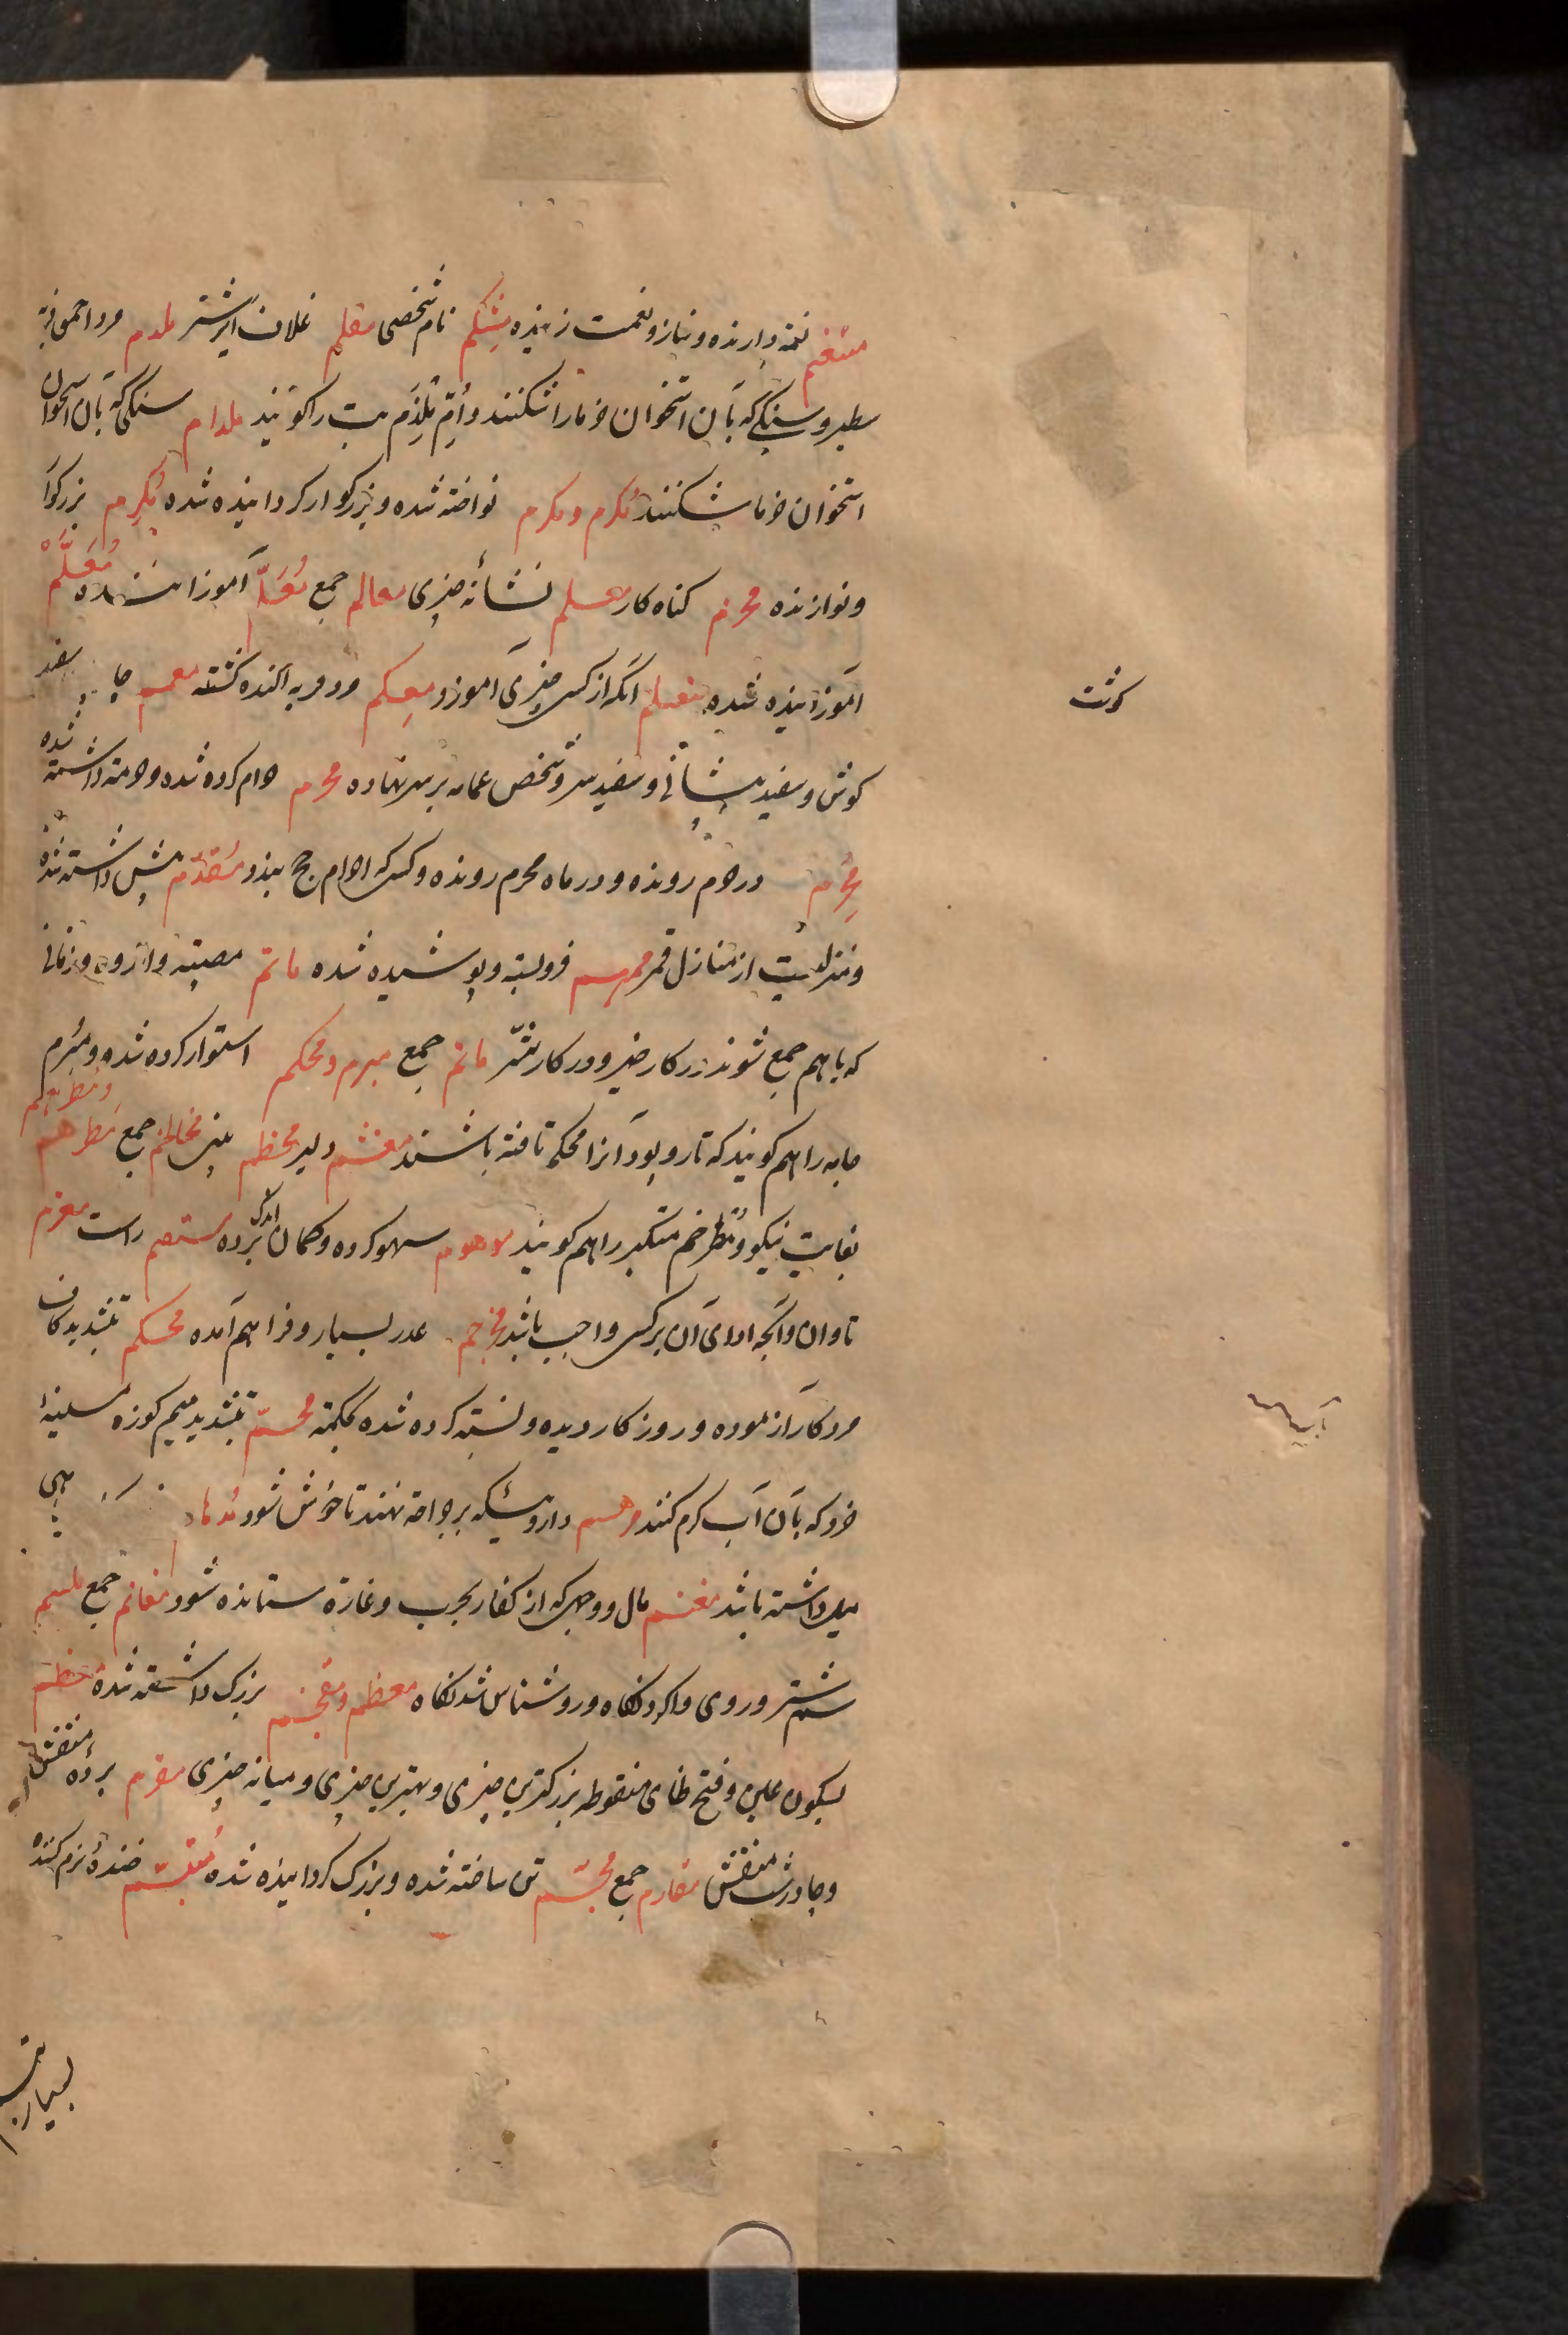 متنعم نعمة دارنده و نیاز و نعمت زینده مشکم نام شخصی مقلم غلاف ایر شتر ملدم مرد احمق فربه
سطبر و سنکی که بآن استخوان خرما را شکنند و اُمّ مُلدَم تب را کویند ملدام سنکی که بآن استخوان
استخوان خرما شکنند مُکرَم و مکرم نواخته شده و بزرکوار کردانیده شده مُکرِم بزرکوار
و نوازنده مجرم کناه کار معلم نشانهٔ چیزی معالم جمع مُعَلِّم آموزاننده مُعَلَّم
آموزانیده شده متعلم آنکه از کسی چیزی آموزد معکم مرد فربه آکنده کشته معمم سفید
کوش و سفید پیشانی و سفید سر و شخص عمامه بر سر نهاده محرم حرام کرده شده و حرمة داشته شده
مُحرِم در حرم رونده و در ماه محرم رونده و کسی که احرام حج بندد مُقدّم پیش داشته شده
و منزلیست از منازل قمر مبهم فروبسته و پوشیده شده ماتم مصیبة و اندوه و زنانی
که باهم جمع شوند در کار خیر و در کار شرّ ماتم جمع مبرم و محکم استوار کرده شده و مبرم
جامه را هم کویند که تار و پود آنرا محکم تافته باشند مغشم دلیر مخطم بینی مخاطم جمع مطرهم و مطرخم
بغایت نیکو و مُطرخم متکبر را هم کویند موهوم سهو کرده و کمان برده مستقیم راست مغرم
تاوان و آنچه ادای آن بر کسی واجب باشد عدد بسیار و فراهم آمده محکم بتشدید کاف
مرد کارآزموده و روزکار دیده و نسبته کرده شده بحکمة محمّ بتشدید میم کوزه مسینهٔ
خرد که بآن آب کرم کنند مرهم داروئیکه بر جراحة نهند تا خوش شود
میل داشته باشد مغنم مال و وجهی که از کفار بحرب و غارة ستانده شود مغانم جمع منسم
سم شتر و روی و اکرد نکاه و روشناس شدنکاه معظم و مفخم بزرک داشته شده معظم
بسکون عین و فتح ظای منقوطه بزرکترین چیزی و بهترین چیزی و میانه چیزی مقرم پردهٔ منقش
و چادر شب منقش مقارم جمع مجسّم تن ساخته شده و بزرک کردانیده شده مُتبسّم خندهٔ نرم کننده
کوشت